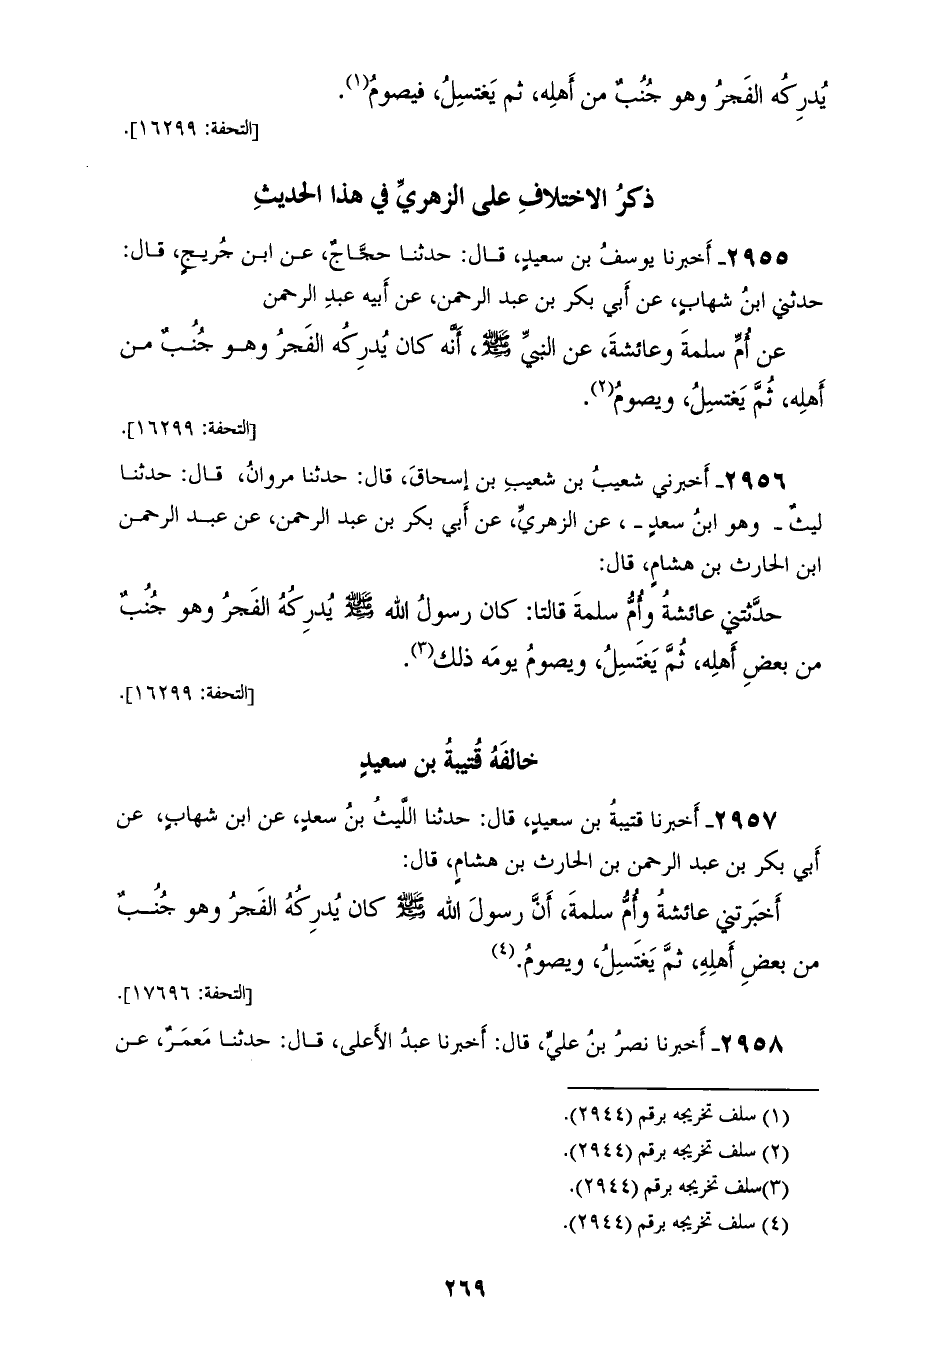 يُدرِكُه الفَجرُ وهو جُنُبٌ من أَهلِه، ثم يَغتسِلُ، فيصومُ(١).
[التحفة: ١٦٢٩٩].
ذكرُ الاختلافِ على الزهريِّ في هذا الحديثِ
٢٩٥٥ـ أَخبرنا يوسفُ بن سعيدٍ، قال: حدثنا حجَّاجٌ، عن ابن جُريجٍ، قال:
حدثني ابنُ شهابٍ، عن أَبي بكر بن عبد الرحمن، عن أَبيه عبدِ الرحمن
عن أُمِّ سلمةَ وعائشةَ، عن النبيِّ ﷺ، أَنَّه كان يُدرِكُه الفَجرُ وهو جُنُبٌ من
أَهلِه، ثُمَّ يَغتسِلُ، ويصومُ(٢).
[التحفة: ١٦٢٩٩].
٢٩٥٦ـ أَخبرني شعيبُ بن شعيبِ بن إسحاقَ، قال: حدثنا مروانُ، قال: حدثنا
ليثٌ ـ وهو ابنُ سعدٍ ـ ، عن الزهريِّ، عن أَبي بكر بن عبد الرحمن، عن عبد الرحمن
ابن الحارث بن هشامٍ، قال:
حدَّثتني عائشةُ وأُمُّ سلمةَ قالتا: كان رسولُ الله ﷺ يُدرِكُهُ الفَجرُ وهو جُنُبٌ
من بعضِ أَهلِه، ثُمَّ يَغتَسِلُ، ويصومُ يومَه ذلك(٣).
[التحفة: ١٦٢٩٩].
خالفَهُ قُتيبةُ بن سعيدٍ
٢٩٥٧ـ أَخبرنا قتيبةُ بن سعيدٍ، قال: حدثنا اللَّيثُ بنُ سعدٍ، عن ابن شهابٍ، عن
أَبي بكر بن عبد الرحمن بن الحارث بن هشامٍ، قال:
أَخبَرتني عائشةُ وأُمُّ سلمةَ، أَنَّ رسولَ الله ﷺ كان يُدرِكُهُ الفَجرُ وهو جُنُبٌ
من بعضِ أَهلِهِ، ثمَّ يَغتَسِلُ، ويصومُ.(٤)
[التحفة: ١٧٦٩٦].
٢٩٥٨ـ أَخبرنا نصرُ بنُ عليٍّ، قال: أَخبرنا عبدُ الأَعلى، قال: حدثنا مَعمَرٌ، عن
(١) سلف تخريجه برقم (٢٩٤٤).
(٢) سلف تخريجه برقم (٢٩٤٤).
(٣)سلف تخريجه برقم (٢٩٤٤).
(٤) سلف تخريجه برقم (٢٩٤٤).
٢٦٩